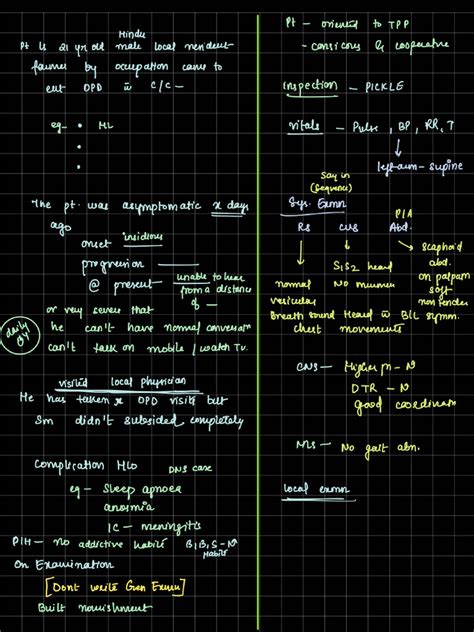 Hindu
Pt is 21 yr old male local resident
farmer by occupation came to
ent OPD c̄ C/C —
eg - • HL
•
•
The pt. was asymptomatic x days
ago
onset insidious
progression —
@ present - unable to hear
from a distance
of —
or very severe that
he can't have normal conversan
can't talk on mobile / watch TV.
daily
visited local physician
He has taken OPD visits but
Sm didn't subsided completely
Complication H/o DNS case
eg - Sleep apnoea
anosmia
IC - meningitis
PIH - no addictive habits B, B, S - N
Habits
On Examination
[Dont write Gen Examn]
Built nourishment
Pt - oriented to TPP
- conscious & cooperative
Inspection - PICKLE
Vitals - Pulse, BP, RR, T
left arm - supine
Say in
(Sequence)
Sys. Exmn
P/A
RS CVS Abd.
normal
vesicular
Breath sound Heard in B/L symm.
chest movements
S1S2 heard
No murmur
scaphoid
abd.
on palpam
soft
non tender
CNS - Higher fn - N
DTR - N
good coordinatn
MS - No gait abn.
local exmn